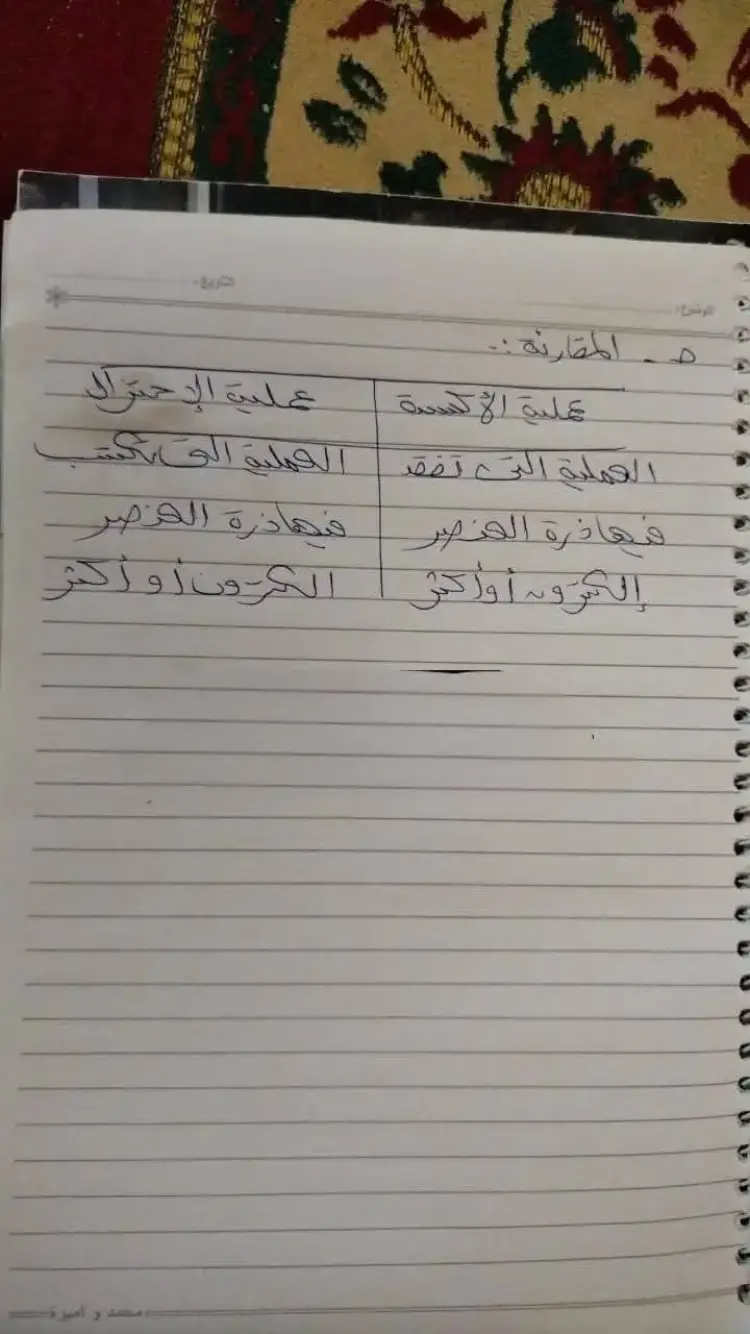 التاريخ:
الموضوع:
ه - المقارنة :-
عملية الأكسدة	عملية الإختزال
العملية التى تفقد	العملية التى تكتسب
فيها ذرة العنصر	فيها ذرة العنصر
إلكترون أو أكثر	الكترون أو أكثر
محمد و أميرة